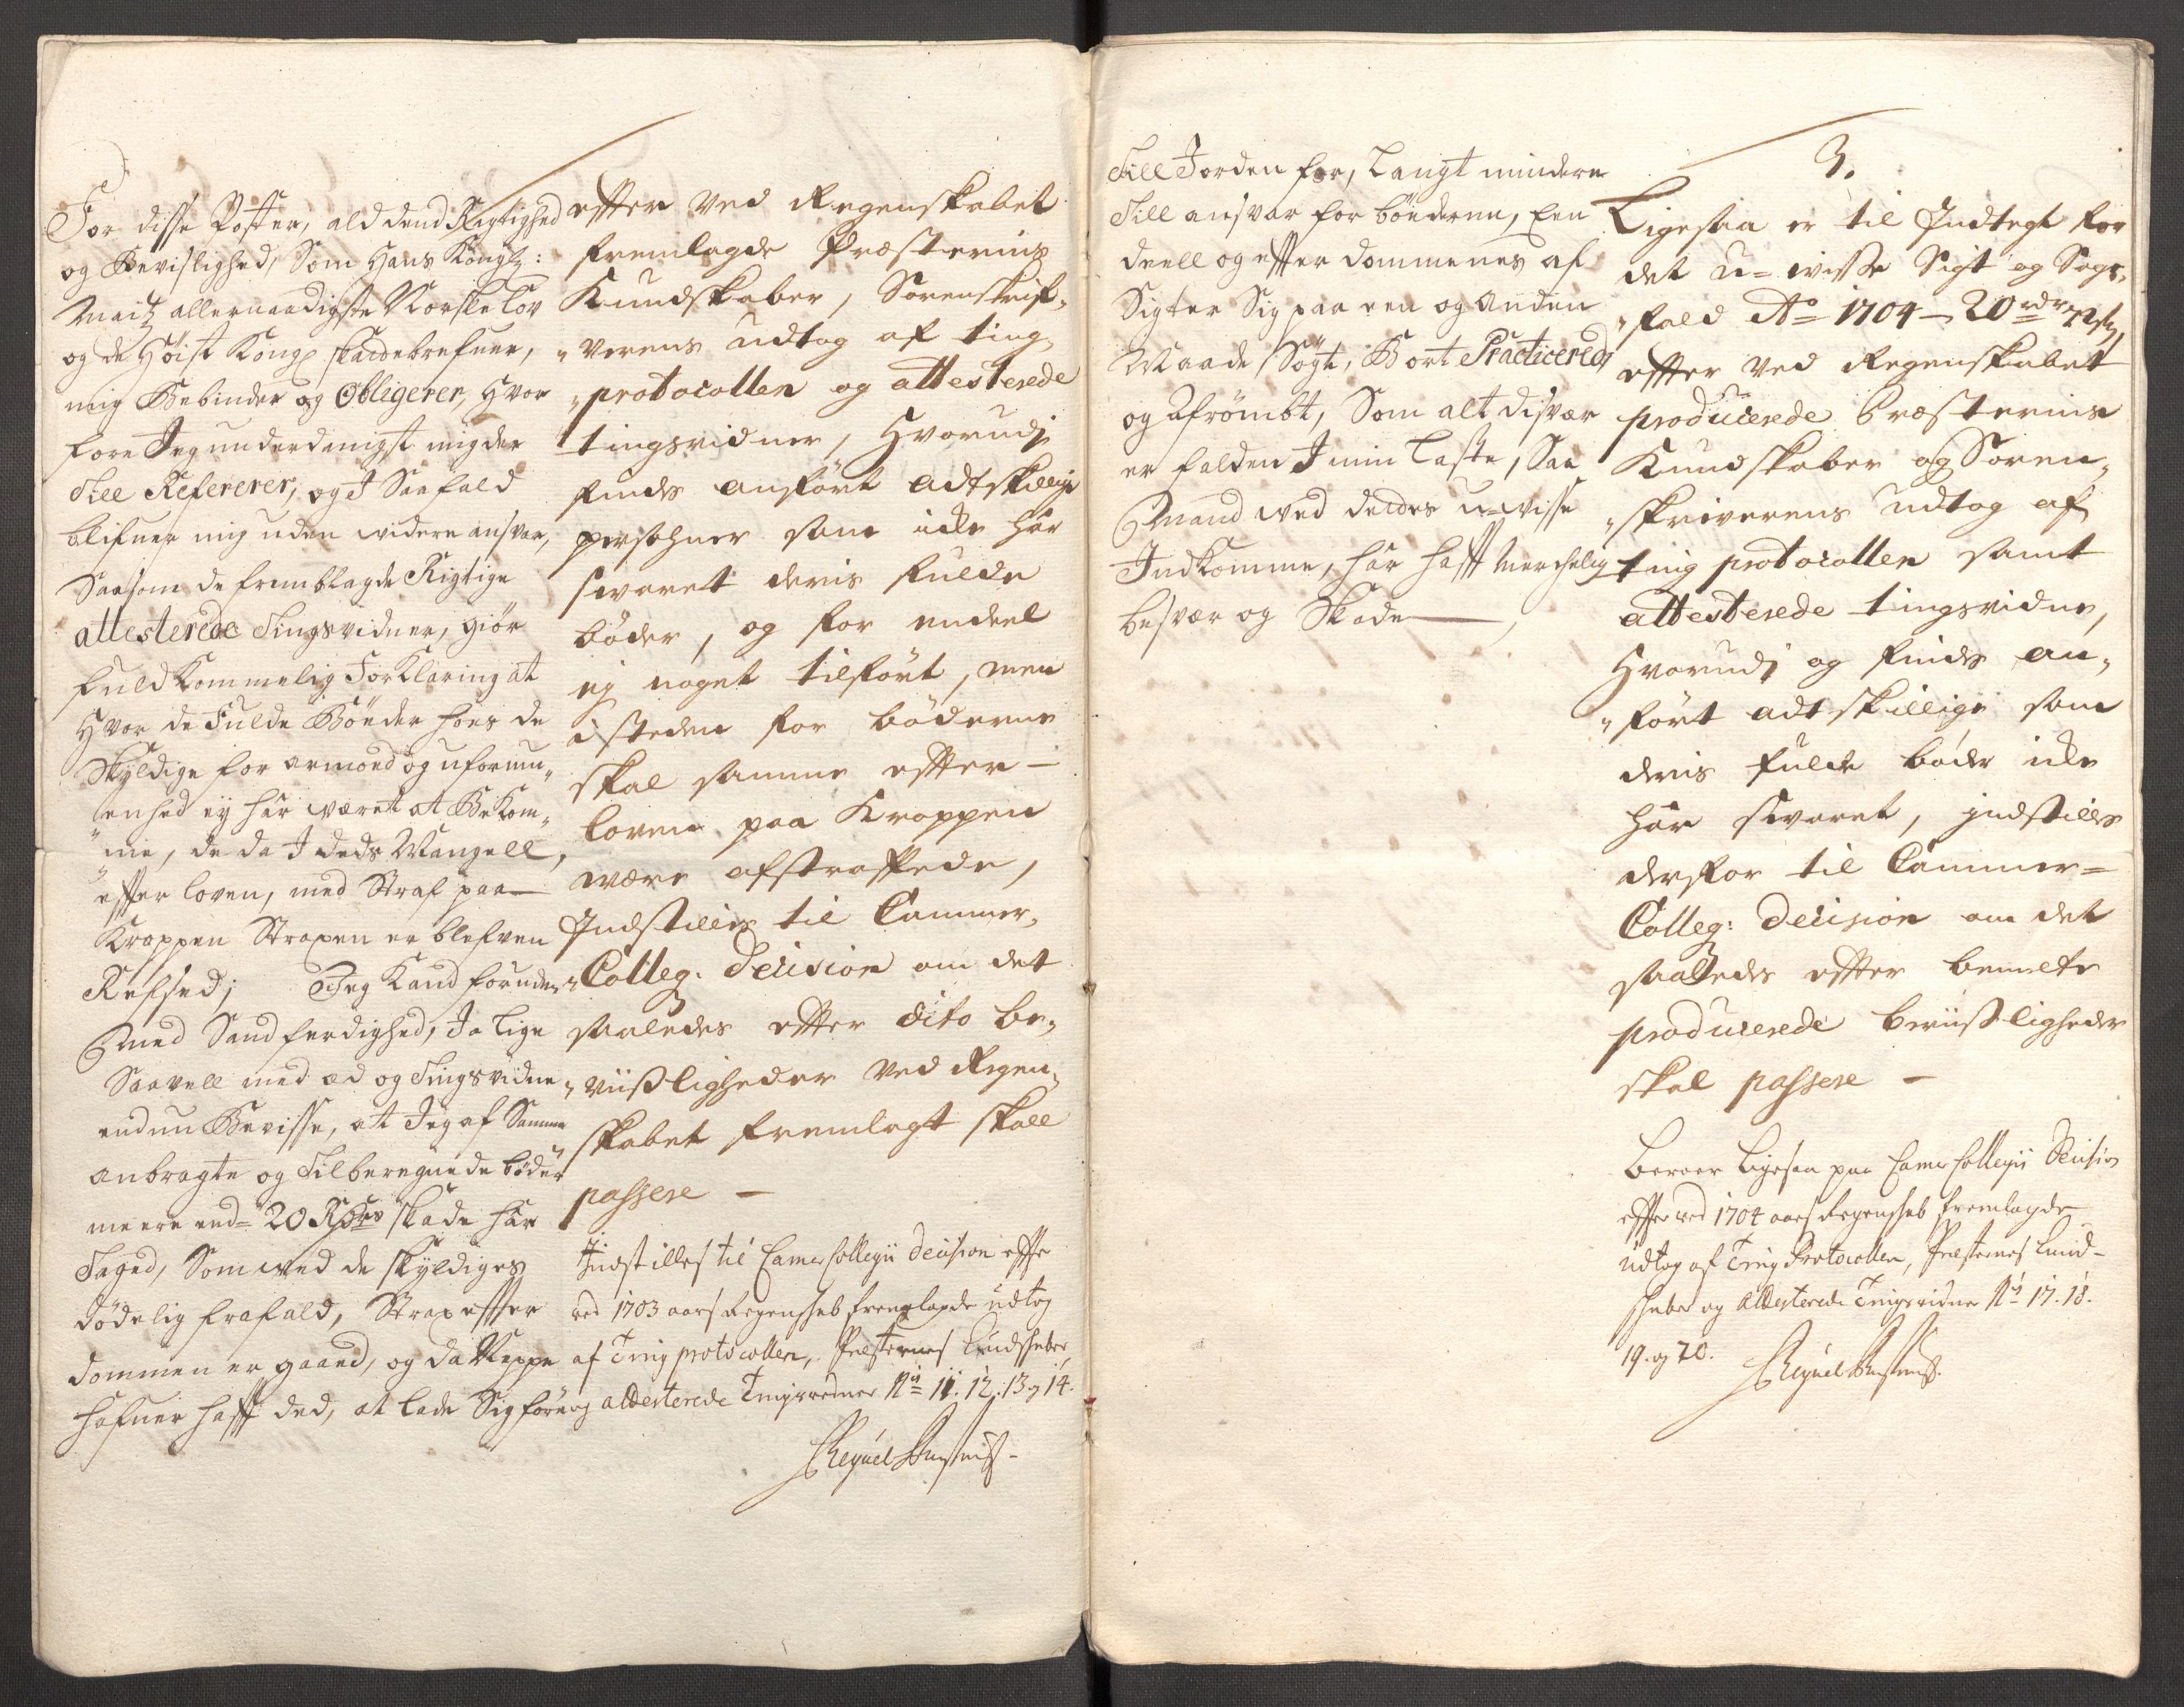 For disse Poster, ald dend Rigtighed
og Bevislighed, Som Hans Kongl:
Maitz allernaadigste Norske Lov
og de Höist Kongl skardebrefuer,
mig Bebinder og Obligerer, Hvor
fore Jeg underdanigst mig der
Till Refererer, og J Saafald
blifuer mig uden widere ansvar,
Saasom de fremblagde Rigtige
attesterede Tingsvidner, giör
fuldkommelig Forklaring at
Hvor de Fulde Bönder hoes de
Skyldige for armoed og uformu„
„enhed ey har wæret at Bekom„
„me, de da J deds Mangell,
effter loven, med Straf paa
Kroppen Straxen er blefven
Refsed; Jeg Kand foruden
Med Sandferdighed, Ja lige
Saavell med æd og Tingsvidne
endnu Bevisse, at Jeg af Samme
anbragte og Tilberegnede böder
meere end 20 Rdrs skade har
Taged, Som wed de skyldiges
dödelig frafald, Strax effter
dommen er gaaed, og da Neppe
hafuer hafft ded, at lade Sig före
effter ved Regenskabet
fremlagde Præsternis
Kundskaber, Sorenskrif„
„verens udtog af ting„
„protocollen og attesterede
tingsvidner, Hvorudj
findes anfört adtskillige
persohner som icke har
svaret deris fulde
böder, og for endeel
ej noget tilfört, men
i steden for böderne
skal samme effter
loven paa Kroppen
være afstraffede,
Indstilles til Cammer„
„Colleg: Decision om det
saaledes effter dito be„
„viisligheder ved Regen„
skabet fremlagt skall
passere —
Indstilles til Camer Collegii decision effter
ved 1703 aars Regenskab fremlagde udtog
af Ting protocollen, Presternes Kundskaber,
og attesterede Tingsvidner No 11. 12. 13 og 14.
Till Jorden for, Langt mindere
Till ansvar for böderne, Een
deell og effter dommenes af
Sigter Sig paa een og anden
Maade Sögt, Bort Practiceret
og Afrömbt, Som alt disvær
er falden J min Laste, Saa
Mand wed dendes u-wisse
Indkomme, har hafft Merchelig
besvær og Skade —
3.
Ligesaa er til Indtegt for
det u-wisse Sigt og Sage„
„fald Ao 1704 — 20 rdr 72 s,
effter ved Regenskabet
producerede Præsternis
Kundskaber og Soren„
„skriverens udtog af
ting protocollen samt
attesterede tingsvidne,
Hvorudj og findes an„
„fört adtskillige som
deris fulde böder icke
har svaret, jndstilles
derfor til Cammer-
Colleg: Decision om det
saaledes effter bemelte
producerede beviisligheder
skal passere —
Beroer ligesaa paa Camer Collegii Decision
effter ved 1704 aars Regenskab fremlagde
udtog af Ting Protocollen, Presternes Kund-
skaber og attesterede Tingsvidner No 17. 18.
19. og 20.